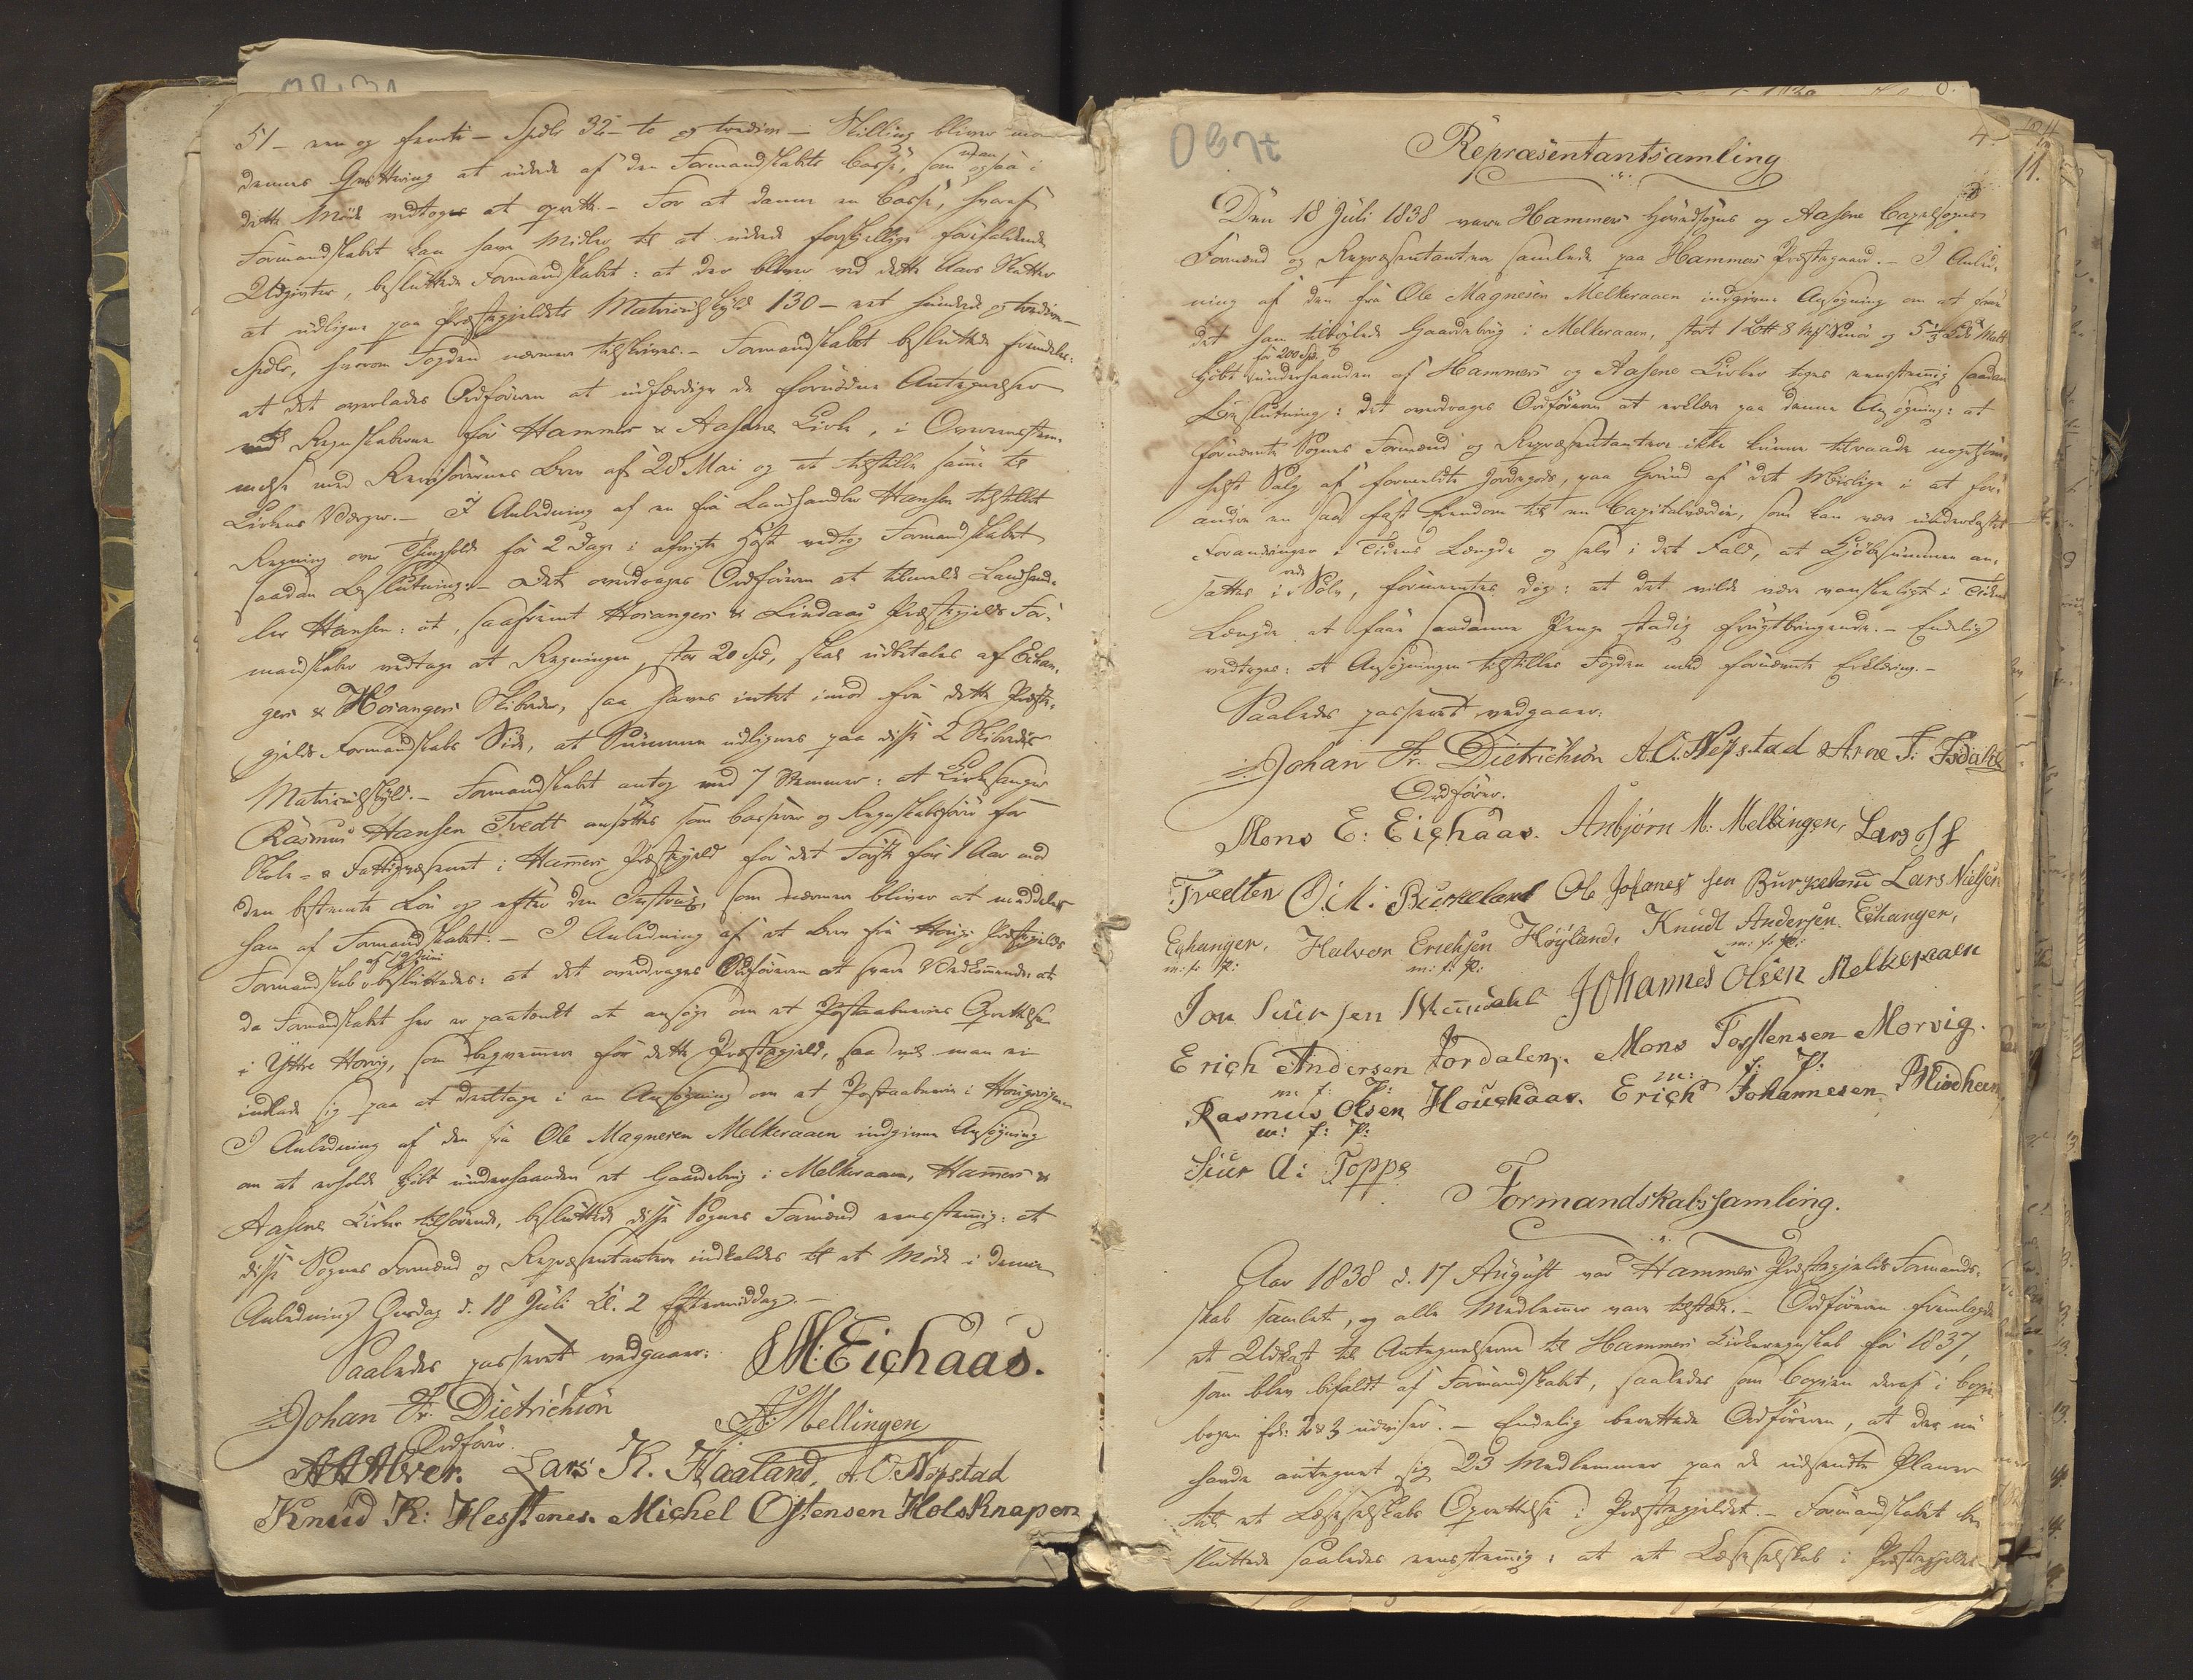 51 – een og femti – Spdlr 32 – to og tredive – Skilling bliver med
dennes Qvittering at udrede af den Formandskabets Casse, som man ogsaa i
dette Møde vedtoges at oprette. – For at danne en Casse, hvoraf
Formandskabet kan have Midler til at udrede forskjellige forefaldende
Udgivter, besluttede Formandskabet: at der bliver ved dette Aars Skatter
at udligne paa Præstegjeldets Matriculskyld 130 – eet hundrede og tredive –
Spdlr, hvorom Fogden nærmere tilskrives. – Formandskabet besluttede fremdeles:
at det overlades Ordføreren at udfærdige de fornødne Antegnelser
ved Regnskaberne for Hammers & Aasene Kirke, i Overeensstem-
melse med Revisorernes Brev af 28 Mai og at tilstille samme til
Kirkens Værger. – I Anledning af en fra Landhandler Hansen tilstillet
Regning over Thinghold for 2 Dage i afvigte Høst vedtog Formandskabet
saadan Beslutning: – Det overdrages Ordføreren at tilmelde Landhand-
ler Hansen: at, saafremt Hosangers & Lindaas Præstegjelds For-
mandskaber vedtage at Regningen, stor 20 Spd, skal udbetales af Eikan-
gers & Hosangers Skibreder, saa haves intet imod fra dette Præste-
gjelds Formandskabs Side, at Summen udlignes paa disse 2 Skibreders
Matriculskyld. – Formandskabet antog med 7 Stemmer: at Kirkesanger
Rasmus Hansen Tvedt ansættes som Casserer og Regnskabsfører for
Skole- & Fattigvæsenet i Hammers Præstegjeld for det Første for 1 Aar mod
den bestemte Løn og efter den Instrux, som nærmere bliver at meddeles
ham af Formandskabet. – I Anledning af et Brev fra Haugs Præstegjelds
Formandskab af 19 Juni besluttedes: at det overdrages Ordføreren at svare Vedkommende: at
da Formandskabet her er paatænkt at ansøge om et Postaabneries Oprettelse
i Yttre Horvig, som beqvemmere for dette Præstegjeld, saa vil man ei
indlade sig paa at deeltage i en Ansøgning om et Postaabnerie i
I Anledning af den fra Ole Magnesen Melkeraaen indgivne Ansøgning
om at erholde kjøbt underhaanden et Gaardebrug i Melkeraaen, Hammers &
Aasene Kirker tilhørende, besluttede disse Sognes Formænd eenstemmig: at
disse Sognes Formænd og Repræsentantere indkaldes til et Møde i denne
Anledning Onsdag d. 18 Juli Kl. 2 Eftermiddag. –
Saaledes passeret vedgaaer:
M: Eichaas.
Johan Fr. Dietrichson
Ordfører.
A: Mellingen
A A Alver. Lars K. Haaland, A O. Nepstad
Knud K: Hesstenes. Michel Ostensen Holsknapen
4.
Repræsentantsamling
Den 18 Juli 1838 vare Hammers Hovedsogns og Aasene Capelsogns
Formænd og Repræsentantere samlede paa Hammers Præstegaard. – I Anled-
ning af den fra Ole Magnesen Melkeraaen indgivne Ansøgning om at faae
det ham tilbøxlede Gaardebrug i Melkeraaen, stort 1 Løb 8 Smør og 5 1/3 Malt
for 200 Spd.
kjøbt underhaanden af Hammers og Aasene Kirker toges eenstemmig saadan
Beslutning: det overdrages Ordføreren at erklære paa denne Ansøgning: at
fornævnte Sognes Formænd og Repræsentantere ikke kunne tilraade nogetsom-
helst Salg af formeldte Jordegods, paa Grund af det Mislige i at for-
andre en saa fast Eiendom til en Capitalværdie, som kan være underkastet
Forandringer i Tidens Længde og selv i det Fald, at Kjøbesummen an-
sattes i rede Sølv, formeentes dog: at det vilde være vanskeligt i Tidens
Længde at faae saadanne Penge stadig frugtbringende. – Endelig
vedtoges: at Ansøgningen tilstilles Fogden med fornævnte Erklæring. –
Saaledes passeret vedgaaer:
Johan Fr. Dietrichson A. O. Nepstad Arne J: Isdahl
Ordfører.
Mons E: Eichaas. Anbjørn M: Mellingen, Lars
Tvedten O: M: Burkeland Ole Johanes sen Burkeland Lars Nielsen
Echanger. Halvor Erichsen Höyland. Knudt Andersen Echanger,
m: f: P: m: f: P: m: f: P:
Jon Siursen Johannes Olsen Melkeraaen
Erich Andersen Jordalen. Mons Torstensen Morvig.
m: f: P: m: f: P:
Rasmus Olsen Houghaas. Erich Johannesen
m: f: P:
Siur A: Toppe
Formandskabssamling.
Aar 1838 d. 17 August var Hammers Præstegjelds Formands-
skab samlet, og alle Medlemmer vare tilstæde. – Ordføreren fremlagde
et Udkast til Antegnelserne til Hammers Kirkeregnskab for 1837,
som blev bifaldt af Formandskabet, saaledes som Copien deraf i Copie-
bogen fol: 2 & 3 udviser. – Endelig berettede Ordføreren, at der nu
havde antegnet sig 23 Medlemmer paa de udsendte Planer
til et Læseselskabs Oprettelse i Præstegjeldet. – Formandskabet be-
sluttede saaledes eenstemmig: at et Læseselskab i Præstegjeldet